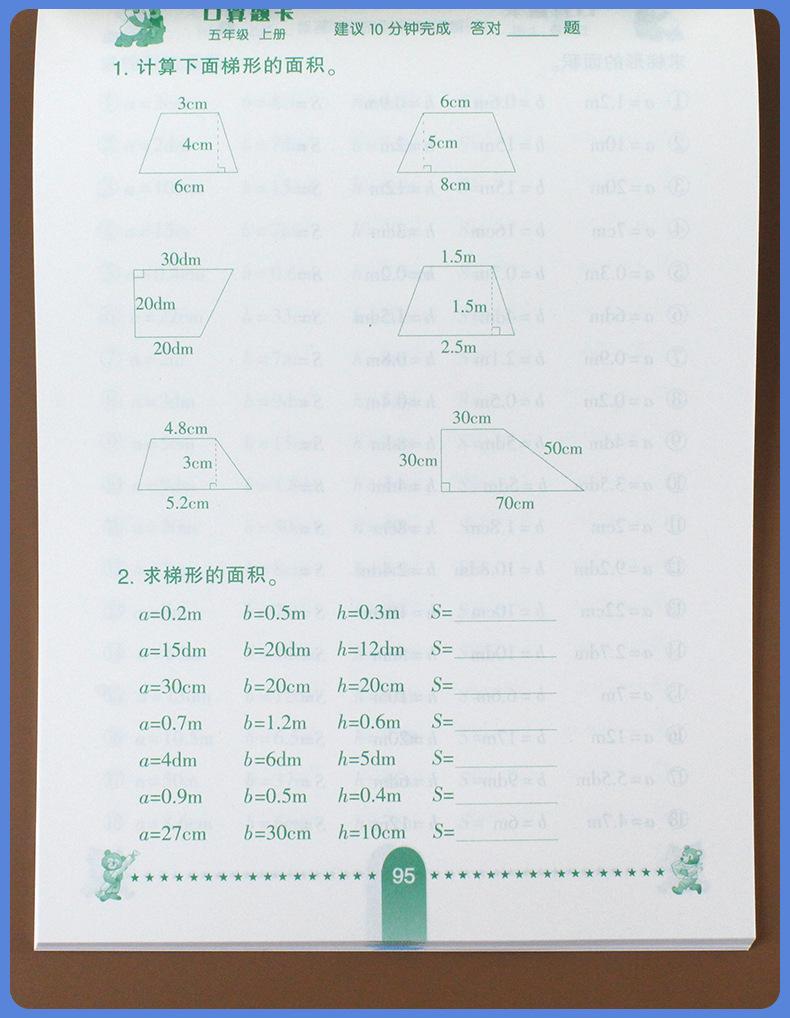 口算题卡
五年级 上册 建议10分钟完成 答对 ______ 题
1. 计算下面梯形的面积。
3cm 6cm
4cm 5cm
6cm 8cm
30dm 1.5m
20dm 1.5m
20dm 2.5m
4.8cm 30cm
3cm 30cm 50cm
5.2cm 70cm
2. 求梯形的面积。
a=0.2m b=0.5m h=0.3m S=
a=15dm b=20dm h=12dm S=
a=30cm b=20cm h=20cm S=
a=0.7m b=1.2m h=0.6m S=
a=4dm b=6dm h=5dm S=
a=0.9m b=0.5m h=0.4m S=
a=27cm b=30cm h=10cm S=
95